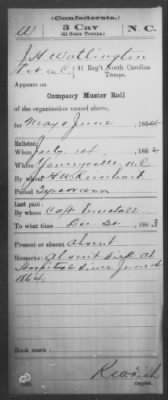 (Confederate.)
W 3 Cav N C.
(41 State Troops.)
J. H. Watlington
Pvt Co C, 41 Reg't North Carolina
Troops.
Appears on
Company Muster Roll
of the organization named above,
for May & June, 1864.
Enlisted:
When July 1st, 1862
Where Yanceyville N C
By whom H W Reinhart
Period
Last paid:
By whom Capt
To what time Dec 31, 1863
Present or absent Absent
Remarks: Absent sick at
Hospital since June
1864
Book mark:
Copyist.